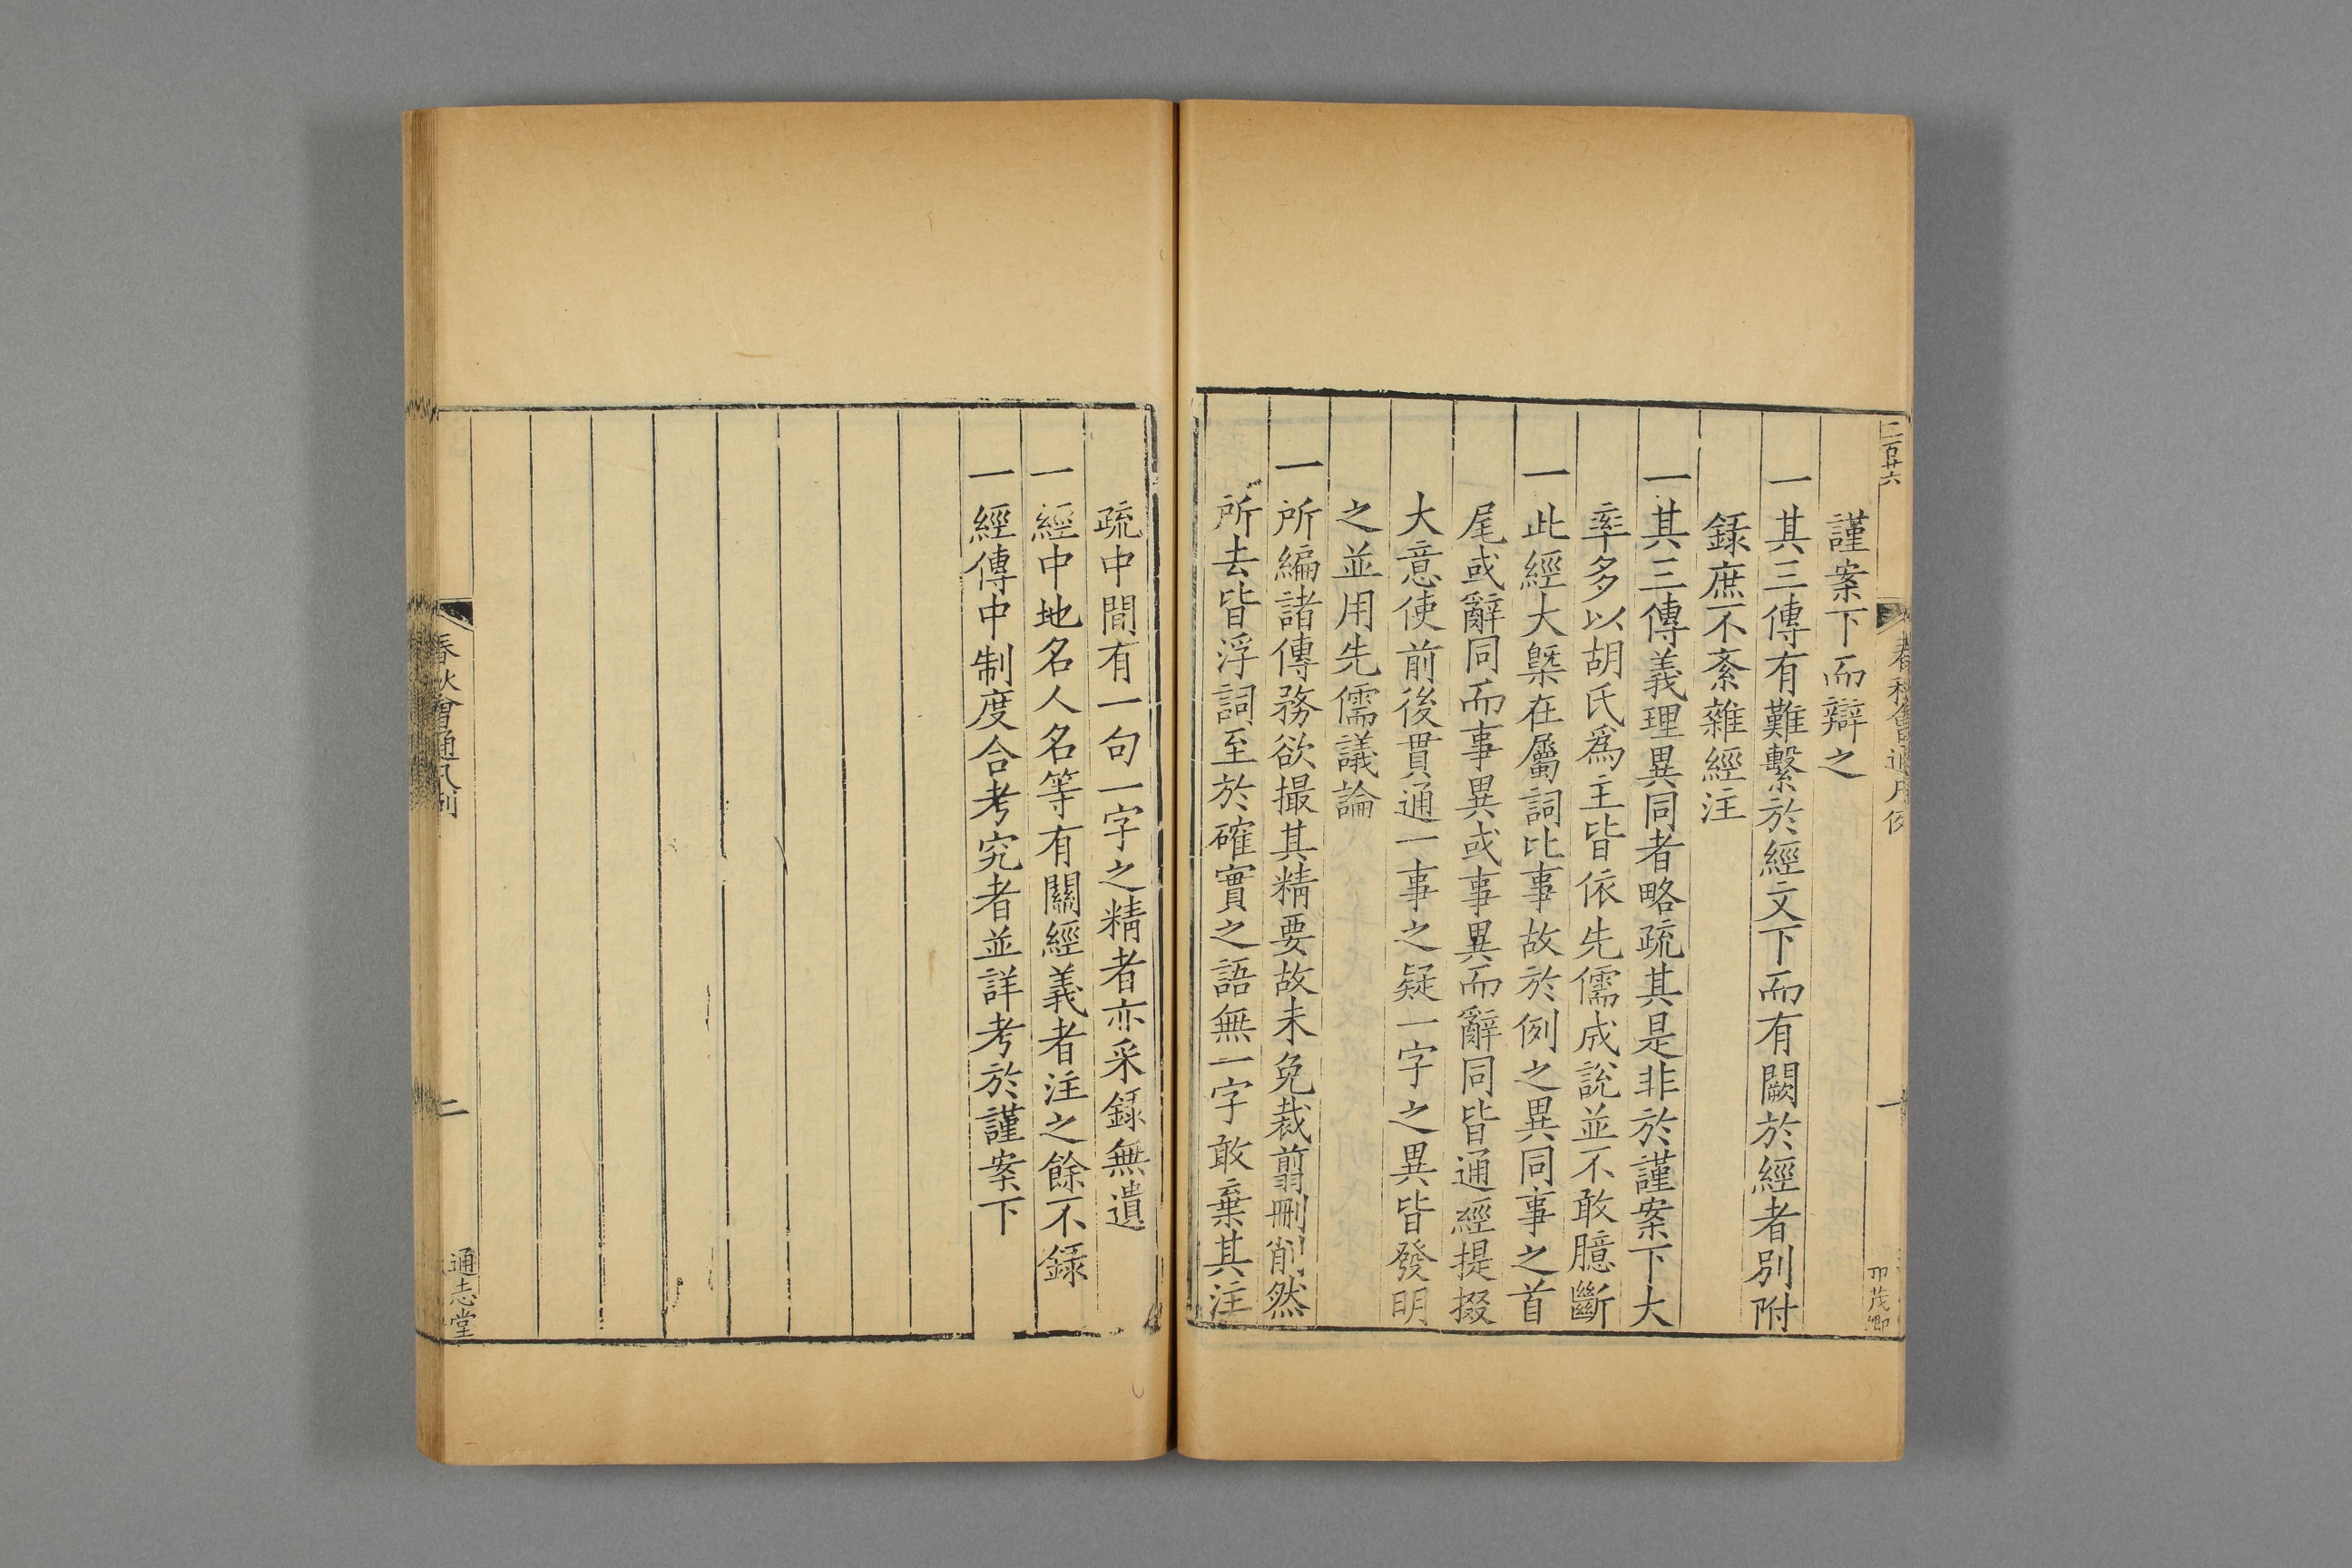 二百廿六
春秋會通凡例
一
茂卿
謹案下而辯之
一其三傳有難繫於經文下而有闕於經者別附
錄庶不紊雜經注
一其三傳義理異同者略疏其是非於謹案下大
率多以胡氏爲主皆依先儒成說並不敢臆斷
一此經大槩在屬詞比事故於例之異同事之首
尾或辭同而事異或事異而辭同皆通經提掇
大意使前後貫通一事之疑一字之異皆發明
之並用先儒議論
一所編諸傳務欲撮其精要故未免裁翦刪削然
所去皆浮詞至於確實之語無一字敢棄其注
疏中間有一句一字之精者亦采錄無遺
一經中地名人名等有關經義者注之餘不錄
一經傳中制度合考究者並詳考於謹案下
春秋會通凡例
二
通志堂